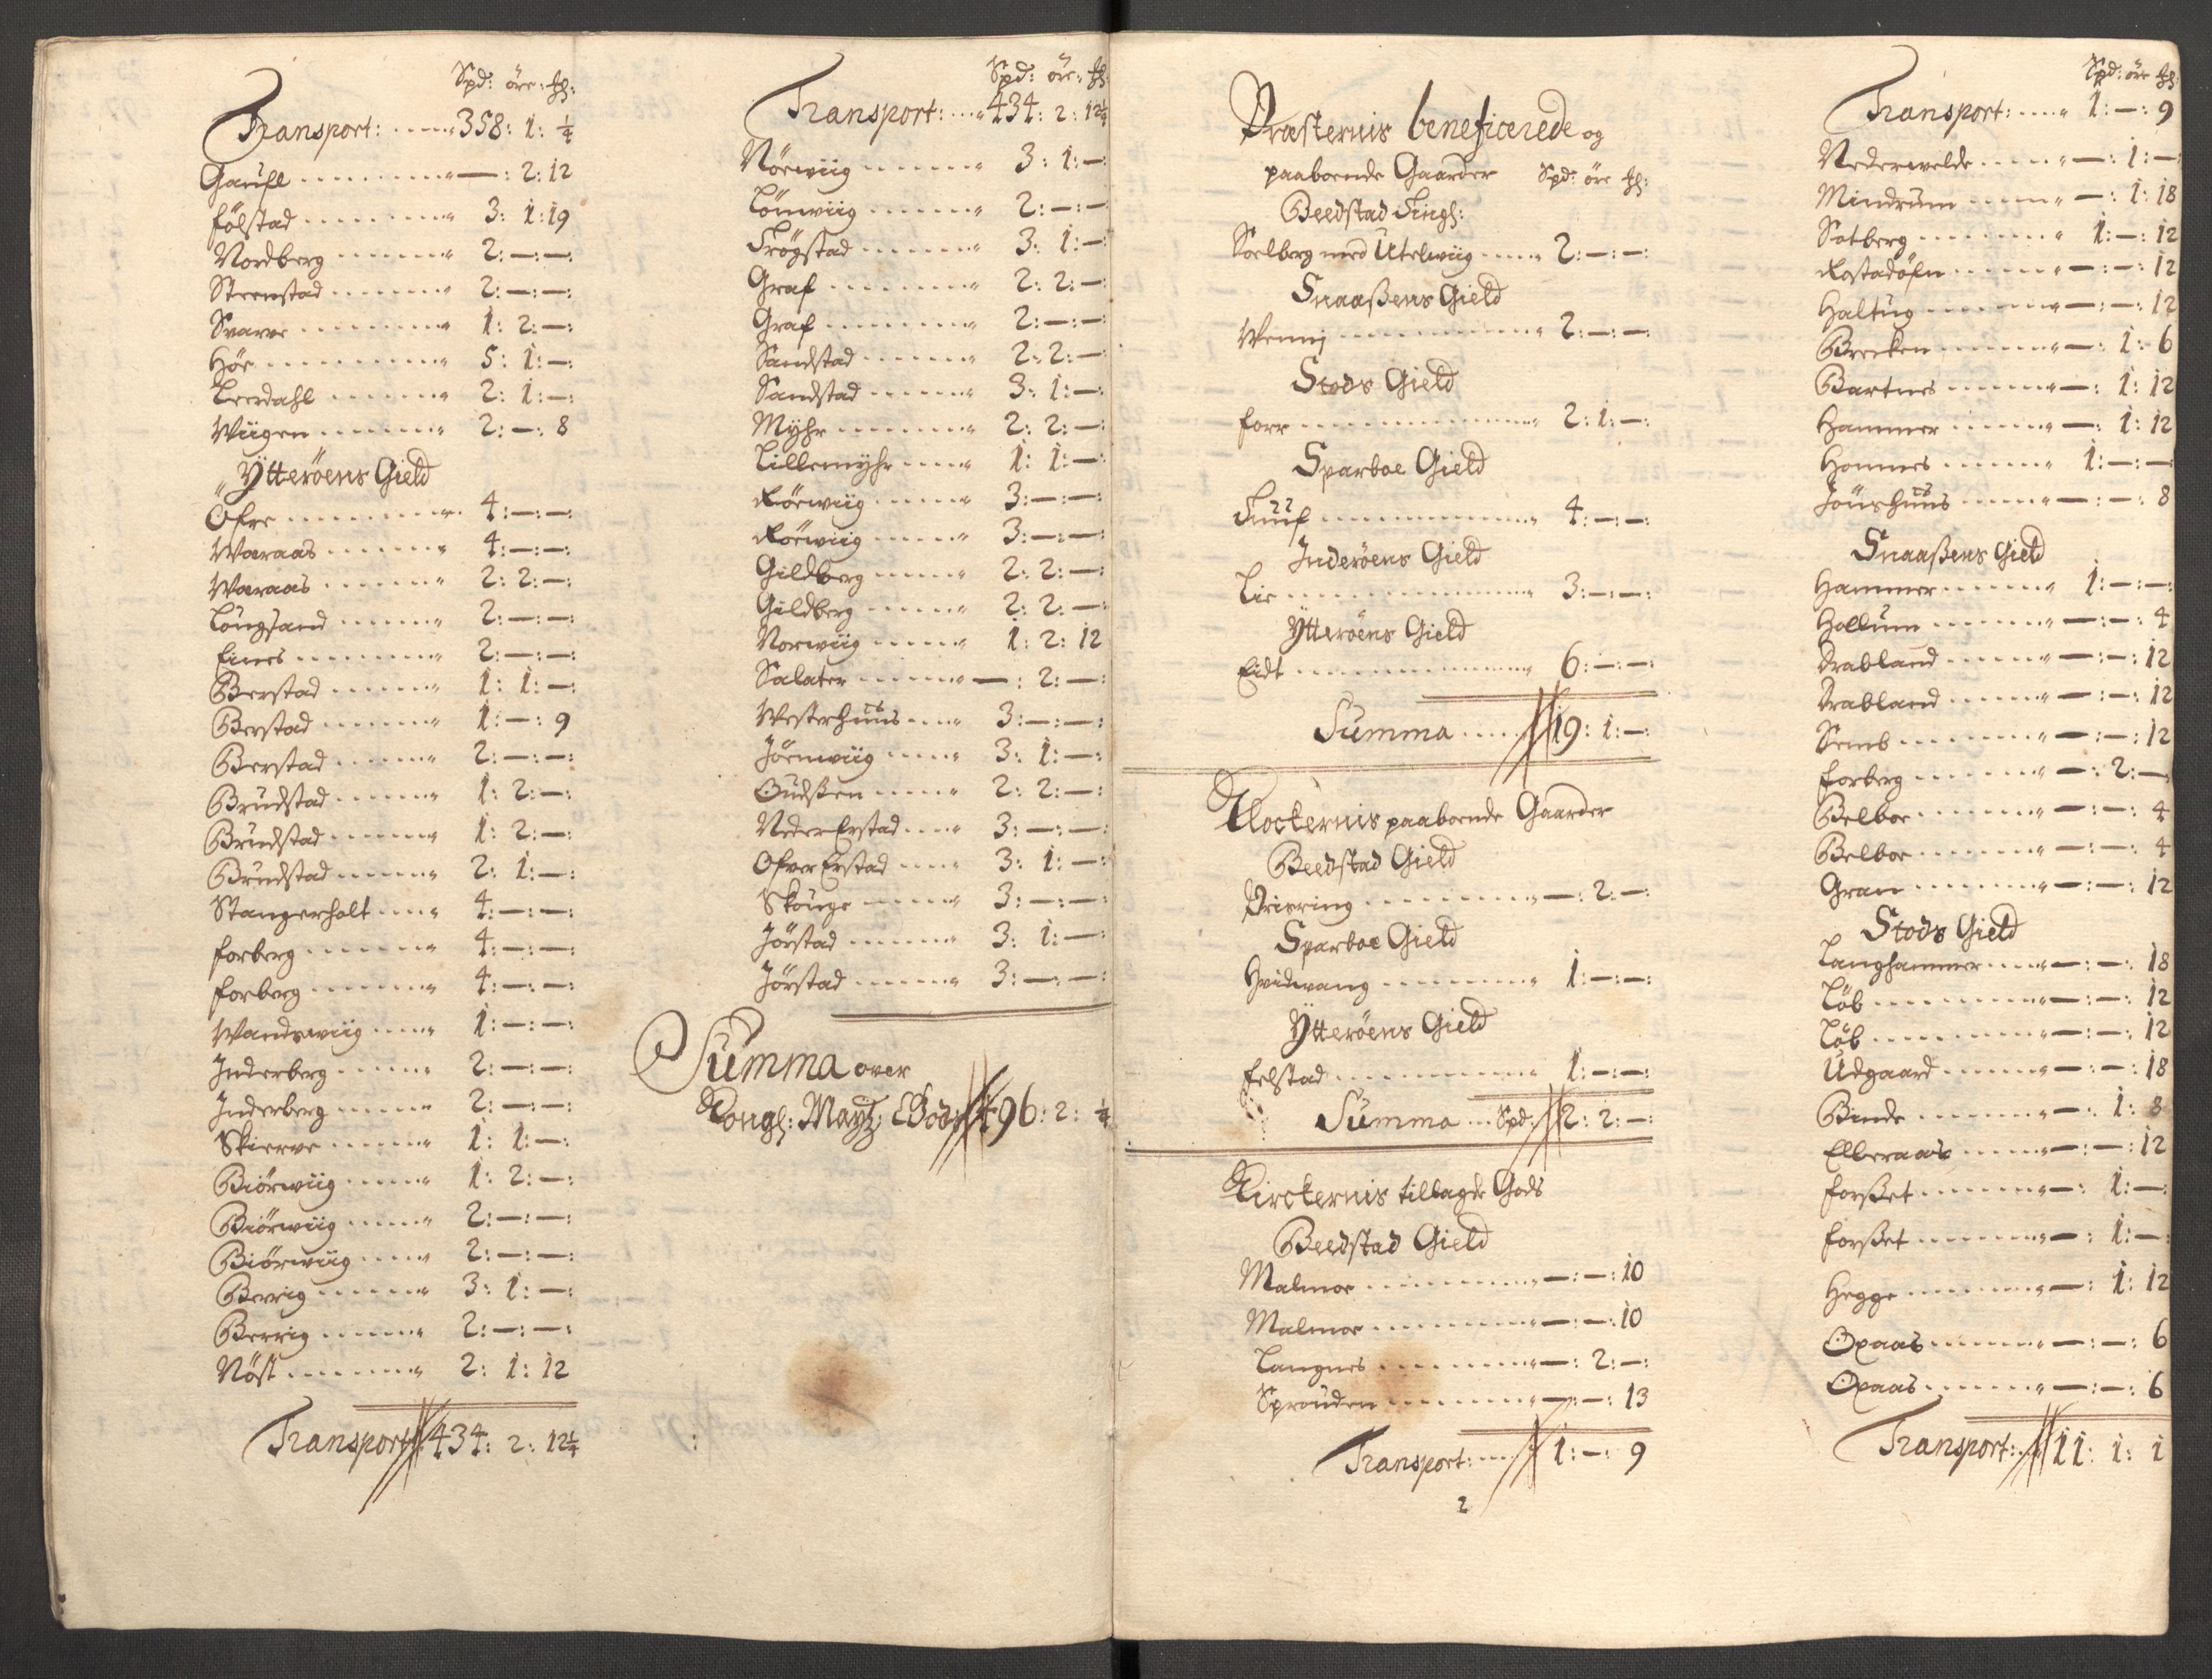 Spd: öre:
Transport: ..... 358: 1: 1/4
Gaufl ......... —: 2: 12
Fölstad ......... 3: 1: 19
Nordberg ....... 2: —: —:
Steenstad ....... 2: —: —:
Svarve ......... 1: 2: —:
Høe ........... 5: 1: —:
Leerdahl ....... 2: 1: —:
Wiigen ....... 2: —: 8
Ytterøens Gield
Øfre ......... 4: —: —:
Waraas ....... 4: —: —:
Waraas ....... 2: 2: —:
Löngsand ...... 2: —: —:
Eines ........ 2: —: —:
Berstad ...... 1: 1: —:
Berstad ...... 1: —: 9
Berstad ...... 2: —: —:
Brudstad ...... 1: 2: —:
Brudstad ...... 1: 2: —:
Brudstad ...... 2: 1: —:
Stangerholt .... 4: —: —:
Forberg ...... 4: —: —:
Forberg ...... 4: —: —:
Wandswiig .... 1: —: —:
Inderberg ..... 2: —: —:
Inderberg ..... 2: —: —:
Skierve ...... 1: 1: —:
Biörwiig ..... 1: 2: —:
Biörwiig ..... 2: —: —:
Biörwiig ..... 2: —: —:
Berrig ...... 3: 1: —:
Berrig ...... 2: —: —:
Nöst ....... 2: 1: 12
Transport 434: 2: 12 1/4
Spd: öre:
Transport: .... 434: 2: 12 1/4
Nörwiig ....... 3: 1: —:
Lönwiig ....... 2: —: —
Trögstad ....... 3: 1: —:
Graf ......... 2: 2: —:
Graf ......... 2: —: —:
Sandstad ....... 2: 2: —:
Sandstad ....... 3: 1: —:
Myhr ........ 2: 2: —:
Lillemyhr ..... 1: 1: —:
Rörwiig ...... 3: —: —:
Rörwiig ...... 3: —: —:
Gildberg ..... 2: 2: —:
Gildberg ..... 2: 2: —:
Norwiig ...... 1: 2: 12
Salater ...... —: 2: —:
Westerhuus .... 3: —: —:
Jörnwiig ..... 3: 1: —:
Oudßen ..... 2: 2: —:
Neder Erstad .... 3: —: —:
Ofver Erstad .... 3: 1: —:
Skouge ..... 3: —: —:
Jörstad ...... 3: 1: —:
Jörstad ...... 3: —: —:
Summa over
Kongl: Maytz: Godz 496: 2: 1/4
Præsternis beneficerede og
paaboende Gaarder Spd: öre
Beedstad Tingl:
Soelberg med Utelwiig .... 2: —: —:
Snaaßens Gield
Wenni ............ 2: —: —:
Stods Gield
Forr ............ 2: 1: —:
Sparboe Gield
Tuuf ............ 4: —: —:
Inderöens Gield
Lie ............ 3: —: —:
Ytteröens Gield
Eidt ............ 6: —: —:
Summa ..... 19: 1: —:
Klockernis paaboende Gaarder
Beedstad Gield
Drisring ......... —: 2: —:
Sparboe Gield
Hvidwang ......... 1: —: —:
Ytteröens Gield
Felstad ........... 1: —: —:
Summa ... Spd: 2: 2: —:
Kirckernis tillagde Gods
Beedstad Gield
Malmoe ......... —: —: 10
Malmoe ......... —: —: 10
Langnes ......... —: 2: —:
Sprouden ........ —: —: 13
Transport: .... 1: —: 9
2
Spd: öre
Transport: .... 1: —: 9
Nederwelde ..... —: 1: —:
Mindrum ..... —: 1: 18
Solberg ........ 1: —: 12
Rostadöln ...... —: —: 12
Haltug ....... —: —: 12
Brecken ...... —: 1: 6
Bartnes ...... —: 1: 12
Hammer ...... —: 1: 12
Homnes ...... 1: —: —
Jönshuus ..... —: —: 8
Snaaßens Gield
Hammer ...... 1: —: —:
Hollum ....... —: —: 4
Drabland ..... —: —: 12
Drabland ..... —: —: 12
Semb ........ —: —: 12
Forberg ....... —: 2: —
Belboe ....... —: —: 4
Belboe ....... —: —: 4
Gran ........ —: —: 12
Stods Gield
Langhammer .... —: —: 18
Löb ......... —: —: 12
Löb ......... —: —: 12
Udgaard ...... —: —: 18
Binde ....... —: 1: 8
Elberaas ..... —: —: 12
Forßet ....... —: 1: —
Forßet ....... —: 1: —
Hegge ........ —: 1: 12
Opaas ....... —: —: 6
Opaas ....... —: —: 6
Transport: .. 11: 1: 1